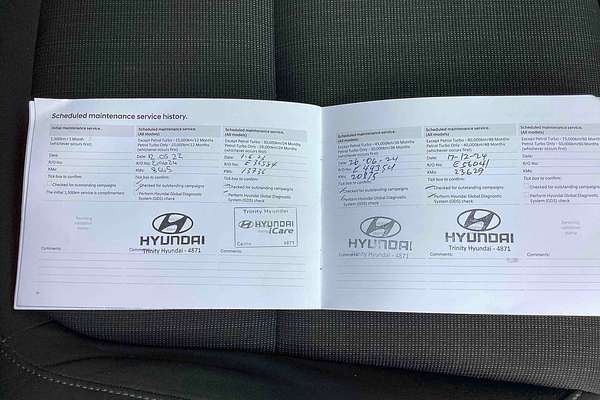 Scheduled maintenance service history.
Initial maintenance service.
1,500km / 1 Month
(whichever occurs first)
Date:
R/O No:
KMs:
Tick box to confirm:
Checked for outstanding campaigns
The initial 1,500km service is complimentary
Servicing
stamp
Comments:
Scheduled maintenance service.
(All models)
Except Petrol Turbo - 15,000km/12 Months
Petrol Turbo Only - 10,000km/12 Months
(whichever occurs first)
Date:
R/O No:
KMs:
Tick box to confirm:
Checked for outstanding campaigns
Perform Hyundai Global Diagnostic
System (GDS) check
HYUNDAI
Trinity Hyundai - 4871
Comments:
Scheduled maintenance service.
(All models)
Except Petrol Turbo - 30,000km/24 Months
Petrol Turbo Only - 20,000km/24 Months
(whichever occurs first)
Date:
R/O No: E35554
KMs: 15736
Tick box to confirm:
Checked for outstanding campaigns
Perform Hyundai Global Diagnostic
System (GDS) check
Trinity Hyundai
HYUNDAI
iCare
4871
Comments:
Scheduled maintenance service.
(All models)
Except Petrol Turbo - 45,000km/36 Months
Petrol Turbo Only - 30,000km/36 Months
(whichever occurs first)
Date: 26.06-24
R/O No: E44354
KMs:
Tick box to confirm:
Checked for outstanding campaigns
Perform Hyundai Global Diagnostic
System (GDS) check
HYUNDAI
Trinity Hyundai - 4871
Comments:
Scheduled maintenance service.
(All models)
Except Petrol Turbo - 60,000km/48 Months
Petrol Turbo Only - 40,000km/48 Months
(whichever occurs first)
Date: 17-12-24
R/O No: E56041
KMs: 23629
Tick box to confirm:
Checked for outstanding campaigns
Perform Hyundai Global Diagnostic
System (GDS) check
HYUNDAI
Trinity Hyundai - 4871
Comments:
Scheduled maintenance service.
(All models)
Except Petrol Turbo - 75,000km/60
Petrol Turbo Only - 50,000km/60
(whichever occurs first)
Date:
R/O No:
KMs:
Tick box to confirm:
Checked for outstanding
Perform Hyundai Global
System (GDS) check
Comments: